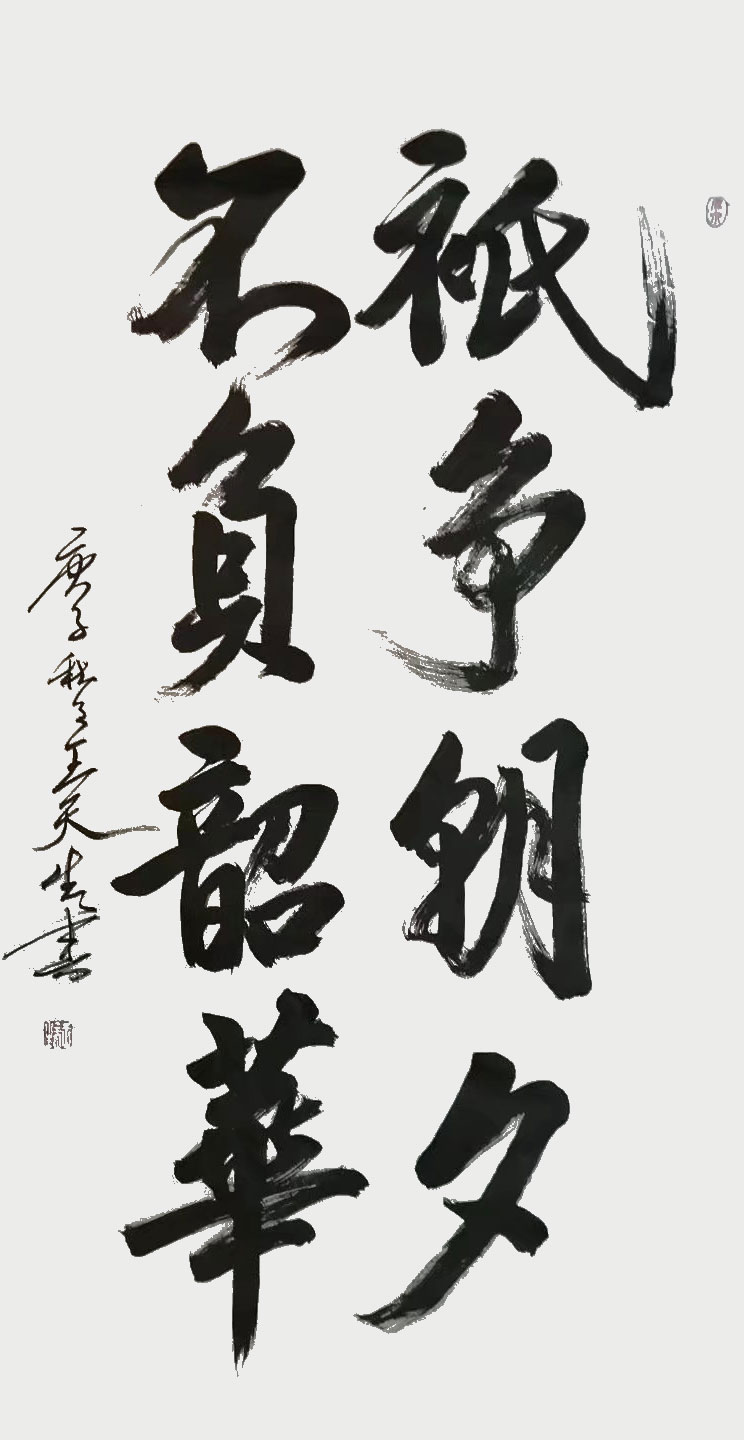 祇争朝夕
不負韶華
庚子秋月王天生書